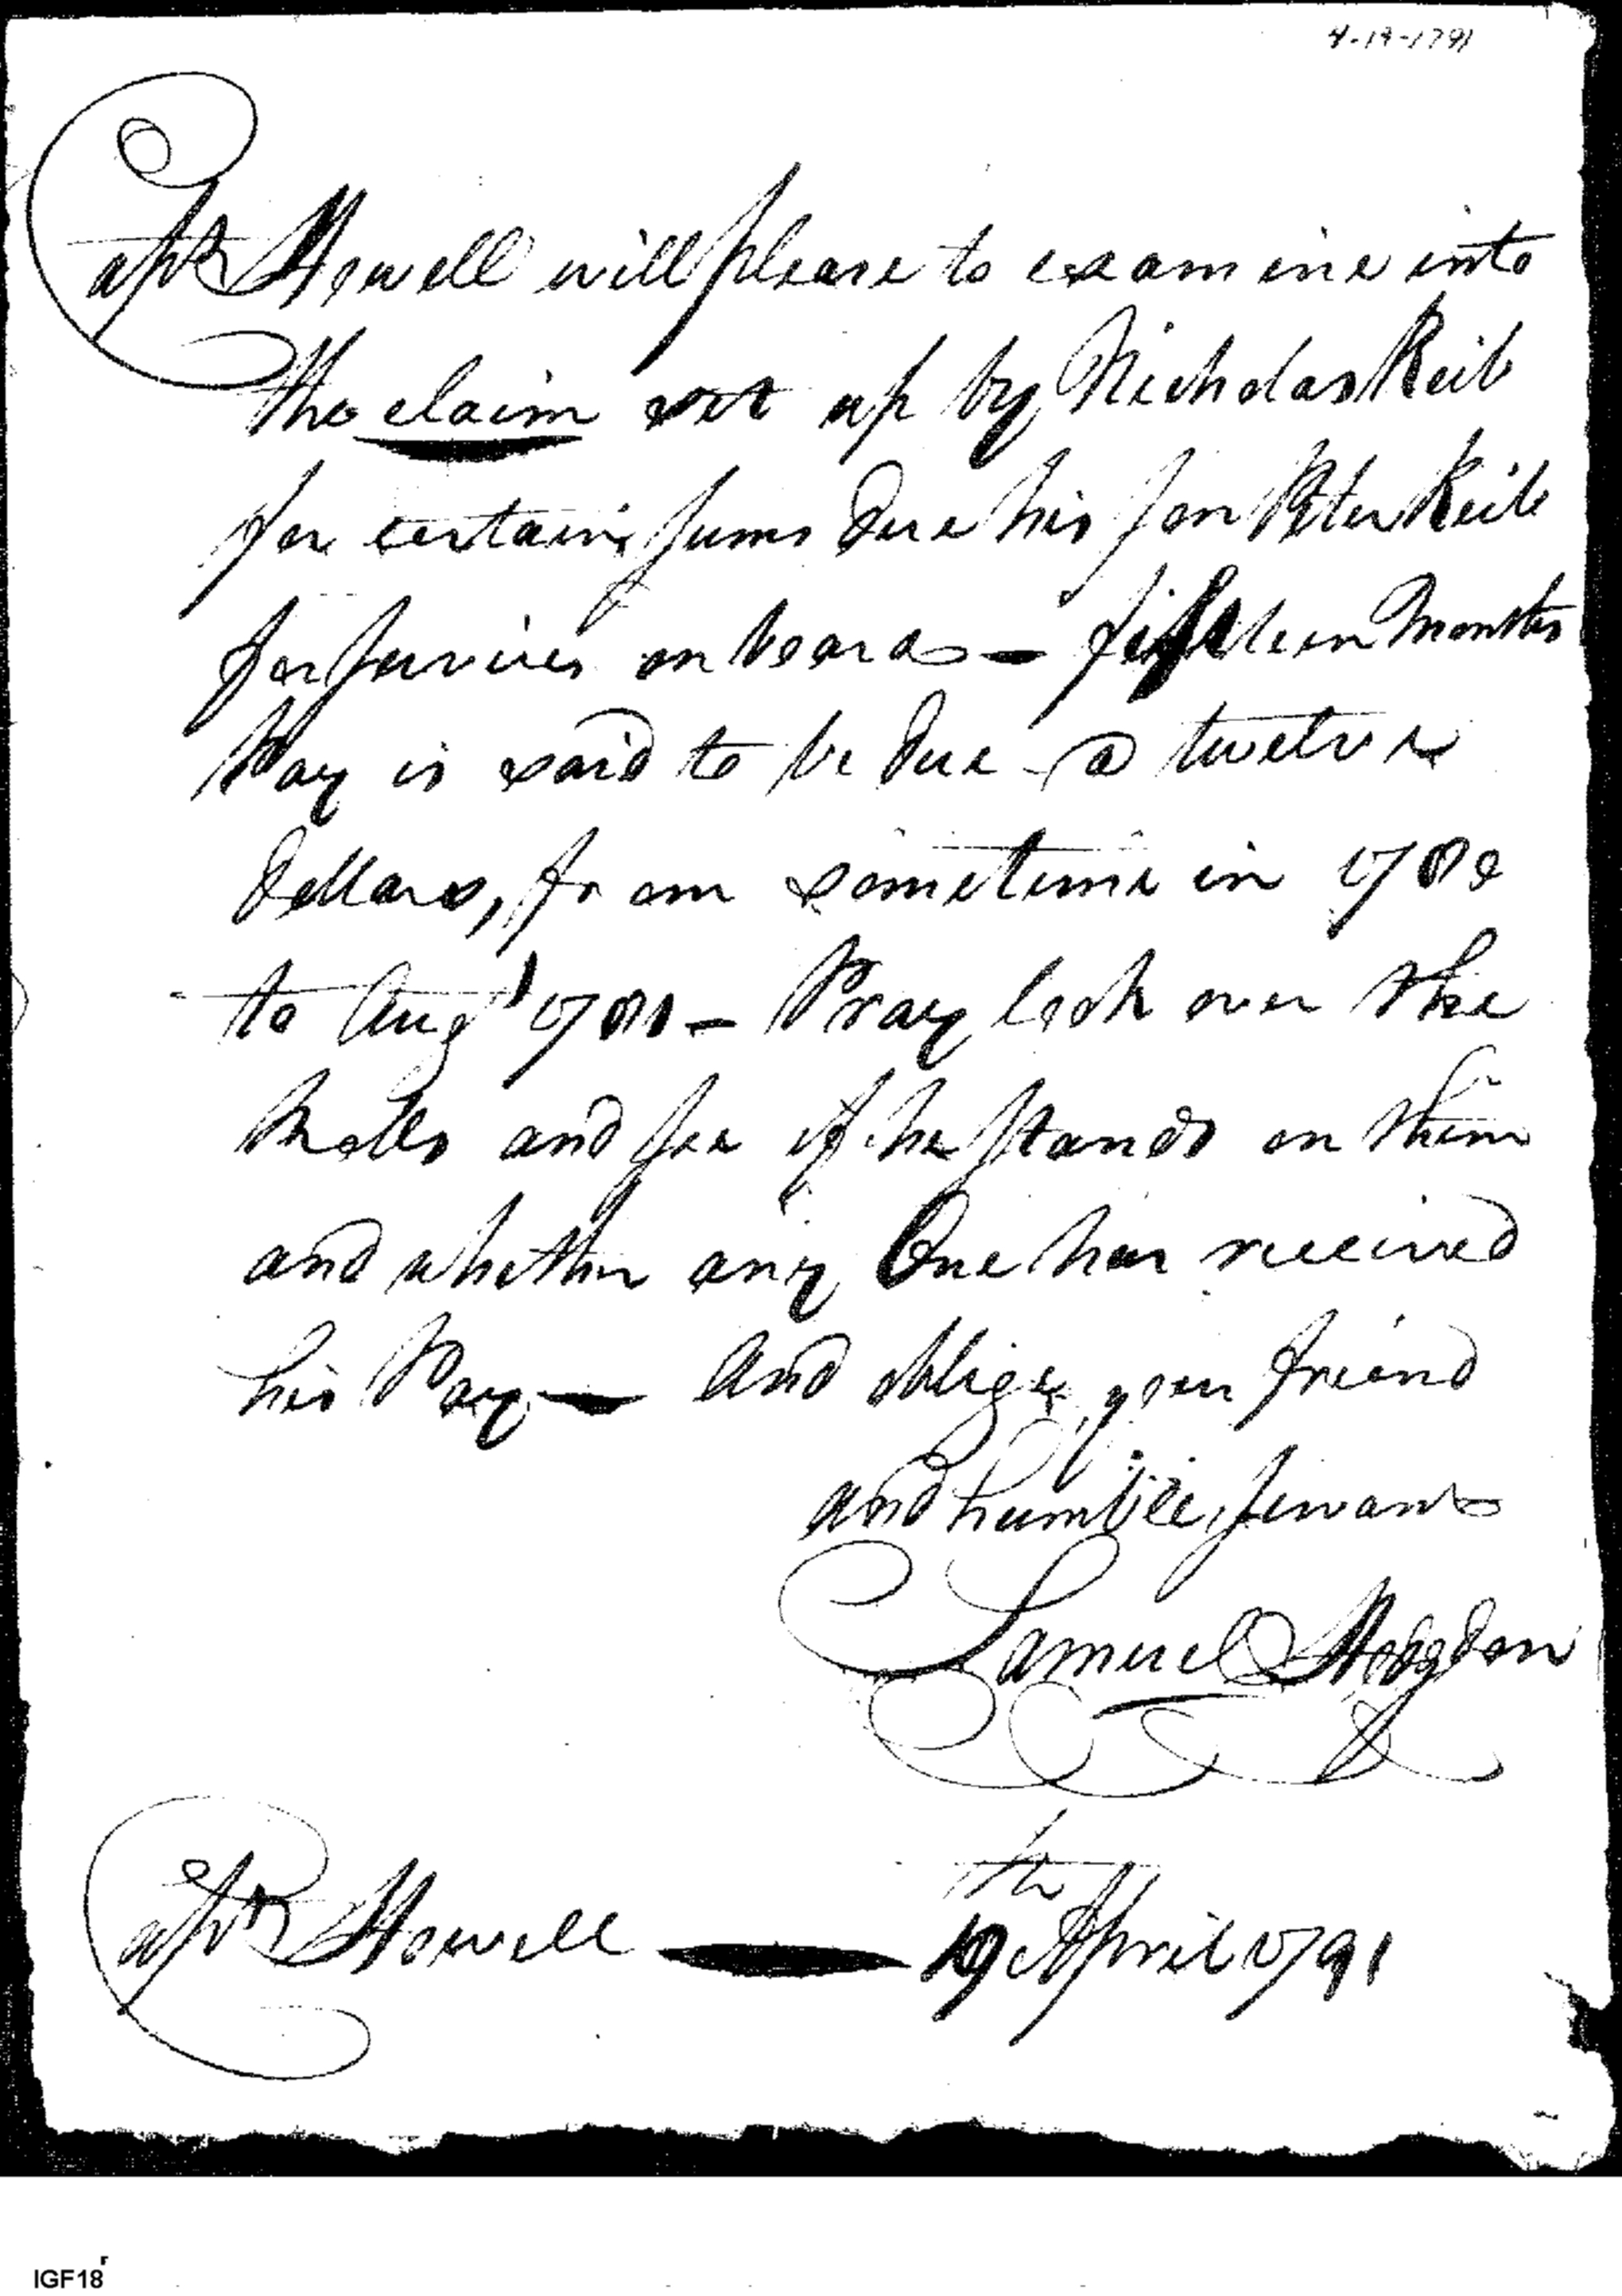 4-19-1791
Capt Howell will please to examine into
the claim set up by Nicholas Keib
for certain sums due his son Peter Keib
for services on board — fifteen Months
Pay is said to be due @ twelve
dollars, from sometime in 1780
to Augt 1781 — Pray look over the
Rolls and see if he stands on them
and whether any One has received
his Pay — And oblige your friend
and humble servant
Samuel Hodgdon
Capt Howell — 19th April 1791
IGF18